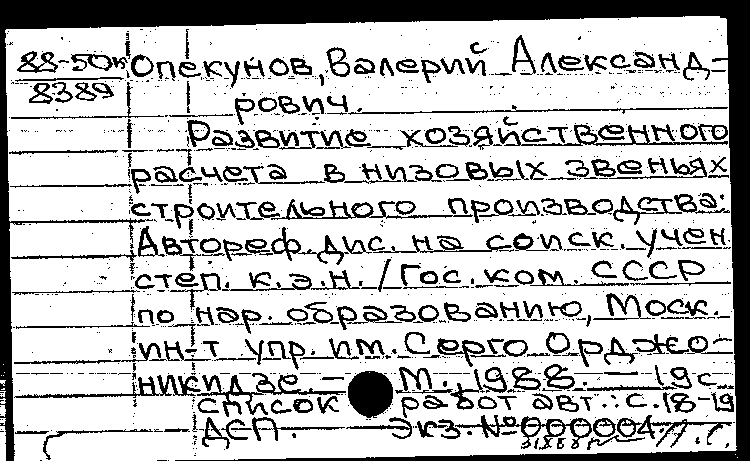 88-50к
8389
Опекунов, Валерий Александ-
рович.
Развитие хозяйственного
расчета в низовых звеньях
строительного производства:
Автореф. дис. на соиск. учен
степ. к.э.н. / Гос. ком. СССР
по нар. образованию, Моск.
ин-т упр. им. Серго Орджо-
никидзе. - М., 1988. - 19 с
список работ авт.: с. 18-19
ДСП. Экз. № 000004